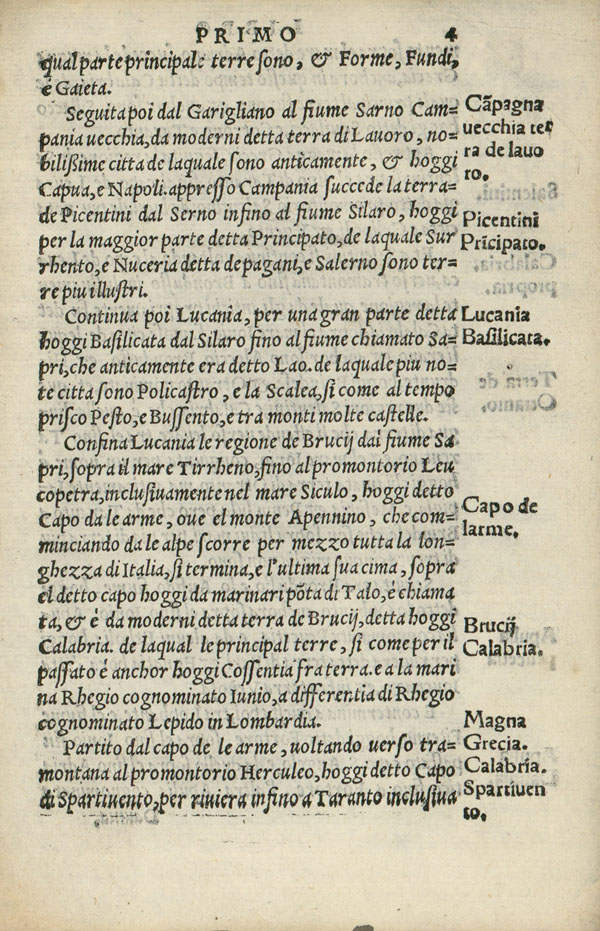 PRIMO 4
qual parte principale terre sono, & Forme, Fundi,
é Gaieta.
Seguita poi dal Garigliano al fiume Sarno Cam=
pania uecchia, da moderni detta terra di Lauoro, no=
bilißime citta de laquale sono anticamente, & hoggi
Capua, e Napoli. appresso Campania succede la terra=
de Picentini dal Serno infino al fiume Silaro, hoggi
per la maggior parte detta Principato, de laquale Sur
rhento, e Nuceria detta de pagani, e Salerno sono ter=
re piu illustri.
Continua poi Lucania, per una gran parte detta
hoggi Basilicata dal Silaro fino al fiume chiamato Sa=
pri, che anticamente era detto Lao. de laquale piu no=
te citta sono Policastro, e la Scalea, si come al tempo
prisco Pesto, e Bussento, e tra monti molte castelle.
Confina Lucania le regione de Brucij dal fiume Sa
pri, sopra il mare Tirrheno, fino al promontorio Leu
copetra, inclusiuamente nel mare Siculo, hoggi detto
Capo da le arme, oue el monte Apennino, che com=
minciando da le alpe scorre per mezzo tutta la lon=
ghezza di Italia, si termina, e l'ultima sua cima, sopra
el detto capo hoggi da marinari põta di Talo, é chiama
ta, & é da moderni detta terra de Brucij, detta hoggi
Calabria. de laqual le principal terre, si come per il
passato é anchor hoggi Cossentia fra terra. e a la mari
na Rhegio cognominato Iunio, a differentia di Rhegio
cognominato Lepido in Lombardia.
Partito dal capo de le arme, uoltando uerso tra=
montana al promontorio Herculeo, hoggi detto Capo
di Spartiuento, per riuiera infino a Taranto inclusiua
Cãpagna
uecchia ter
ra de lauo
ro.
Picentini
Pricipato.
Lucania
Basilicata.
Capo de
larme.
Brucij
Calabria.
Magna
Grecia.
Calabria.
Spartiuen
to.